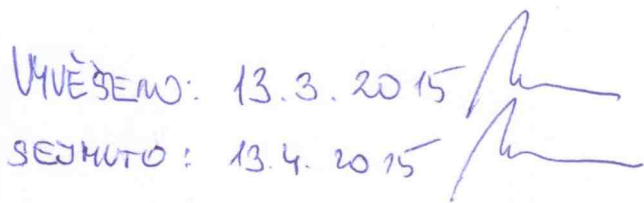 VYVĚŠENO: 13.3.2015
SEJMUTO: 13.4.2015